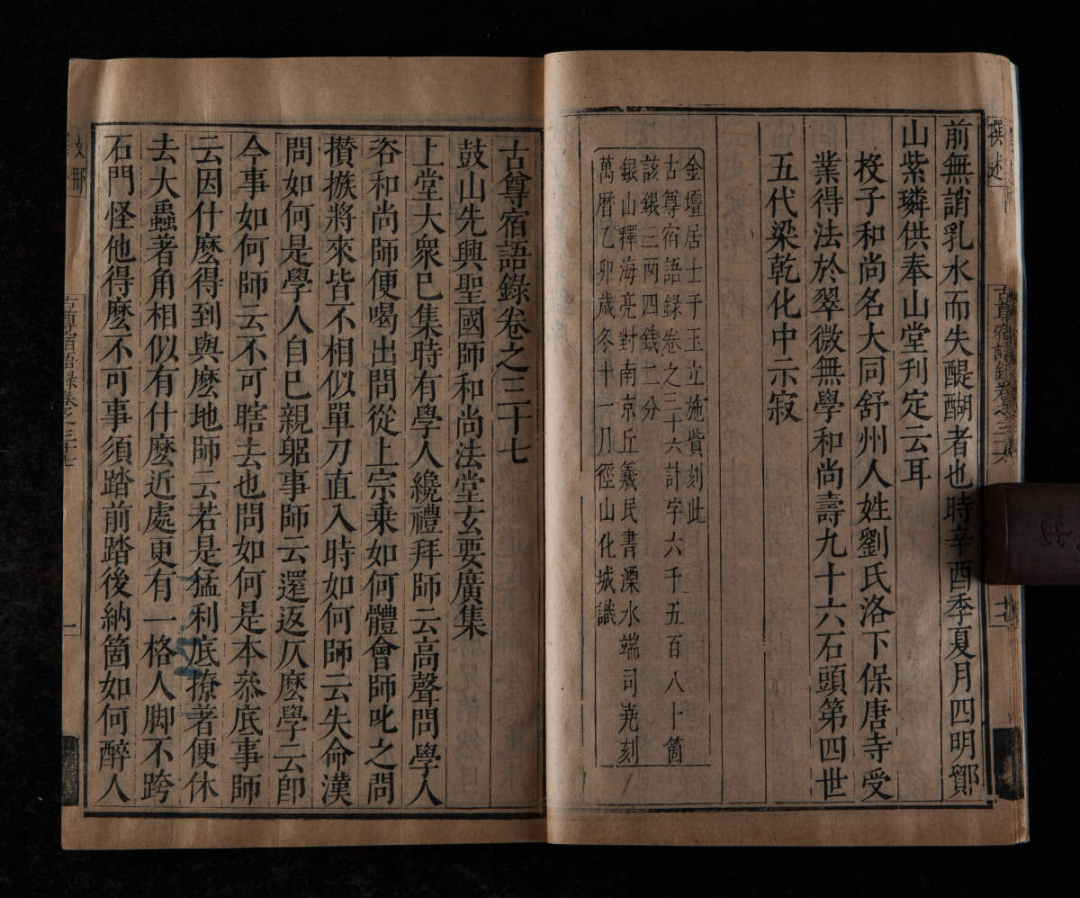 前無誚乳水而失醍醐者也時辛酉季夏月四明鄮
山紫璘供奉山堂刊定云耳
校子和尚名大同舒州人姓劉氏洛下保唐寺受
業得法於翠微無學和尚壽九十六石頭第四世
五代梁乾化中示寂
金壇居士于玉立施貲刻此
古尊宿語錄卷之三十六計字六千五百八十箇
該銀三兩四錢二分
銀山釋海亮對南京丘義民書溧水端司堯刻
萬曆乙卯歲冬十一月徑山化城識
古尊宿語錄卷之三十七
鼓山先興聖國師和尚法堂玄要廣集
上堂大衆巳集時有學人纔禮拜師云高聲問學人
咨和尚師便喝出問從上宗乘如何體會師叱之問
攢撚將來皆不相似單刀直入時如何師云失命漢
問如何是學人自巳親躬事師云還返仄麽學云卽
今事如何師云不可瞎去也問如何是本叅底事師
云因什麽得到與麽地師云若是猛利底撩著便休
去大蟲著角相似有什麽近處更有一格人脚不跨
石門怪他得麽不可事須踏前踏後納箇如何醉人
古尊宿語錄卷之三十七
一